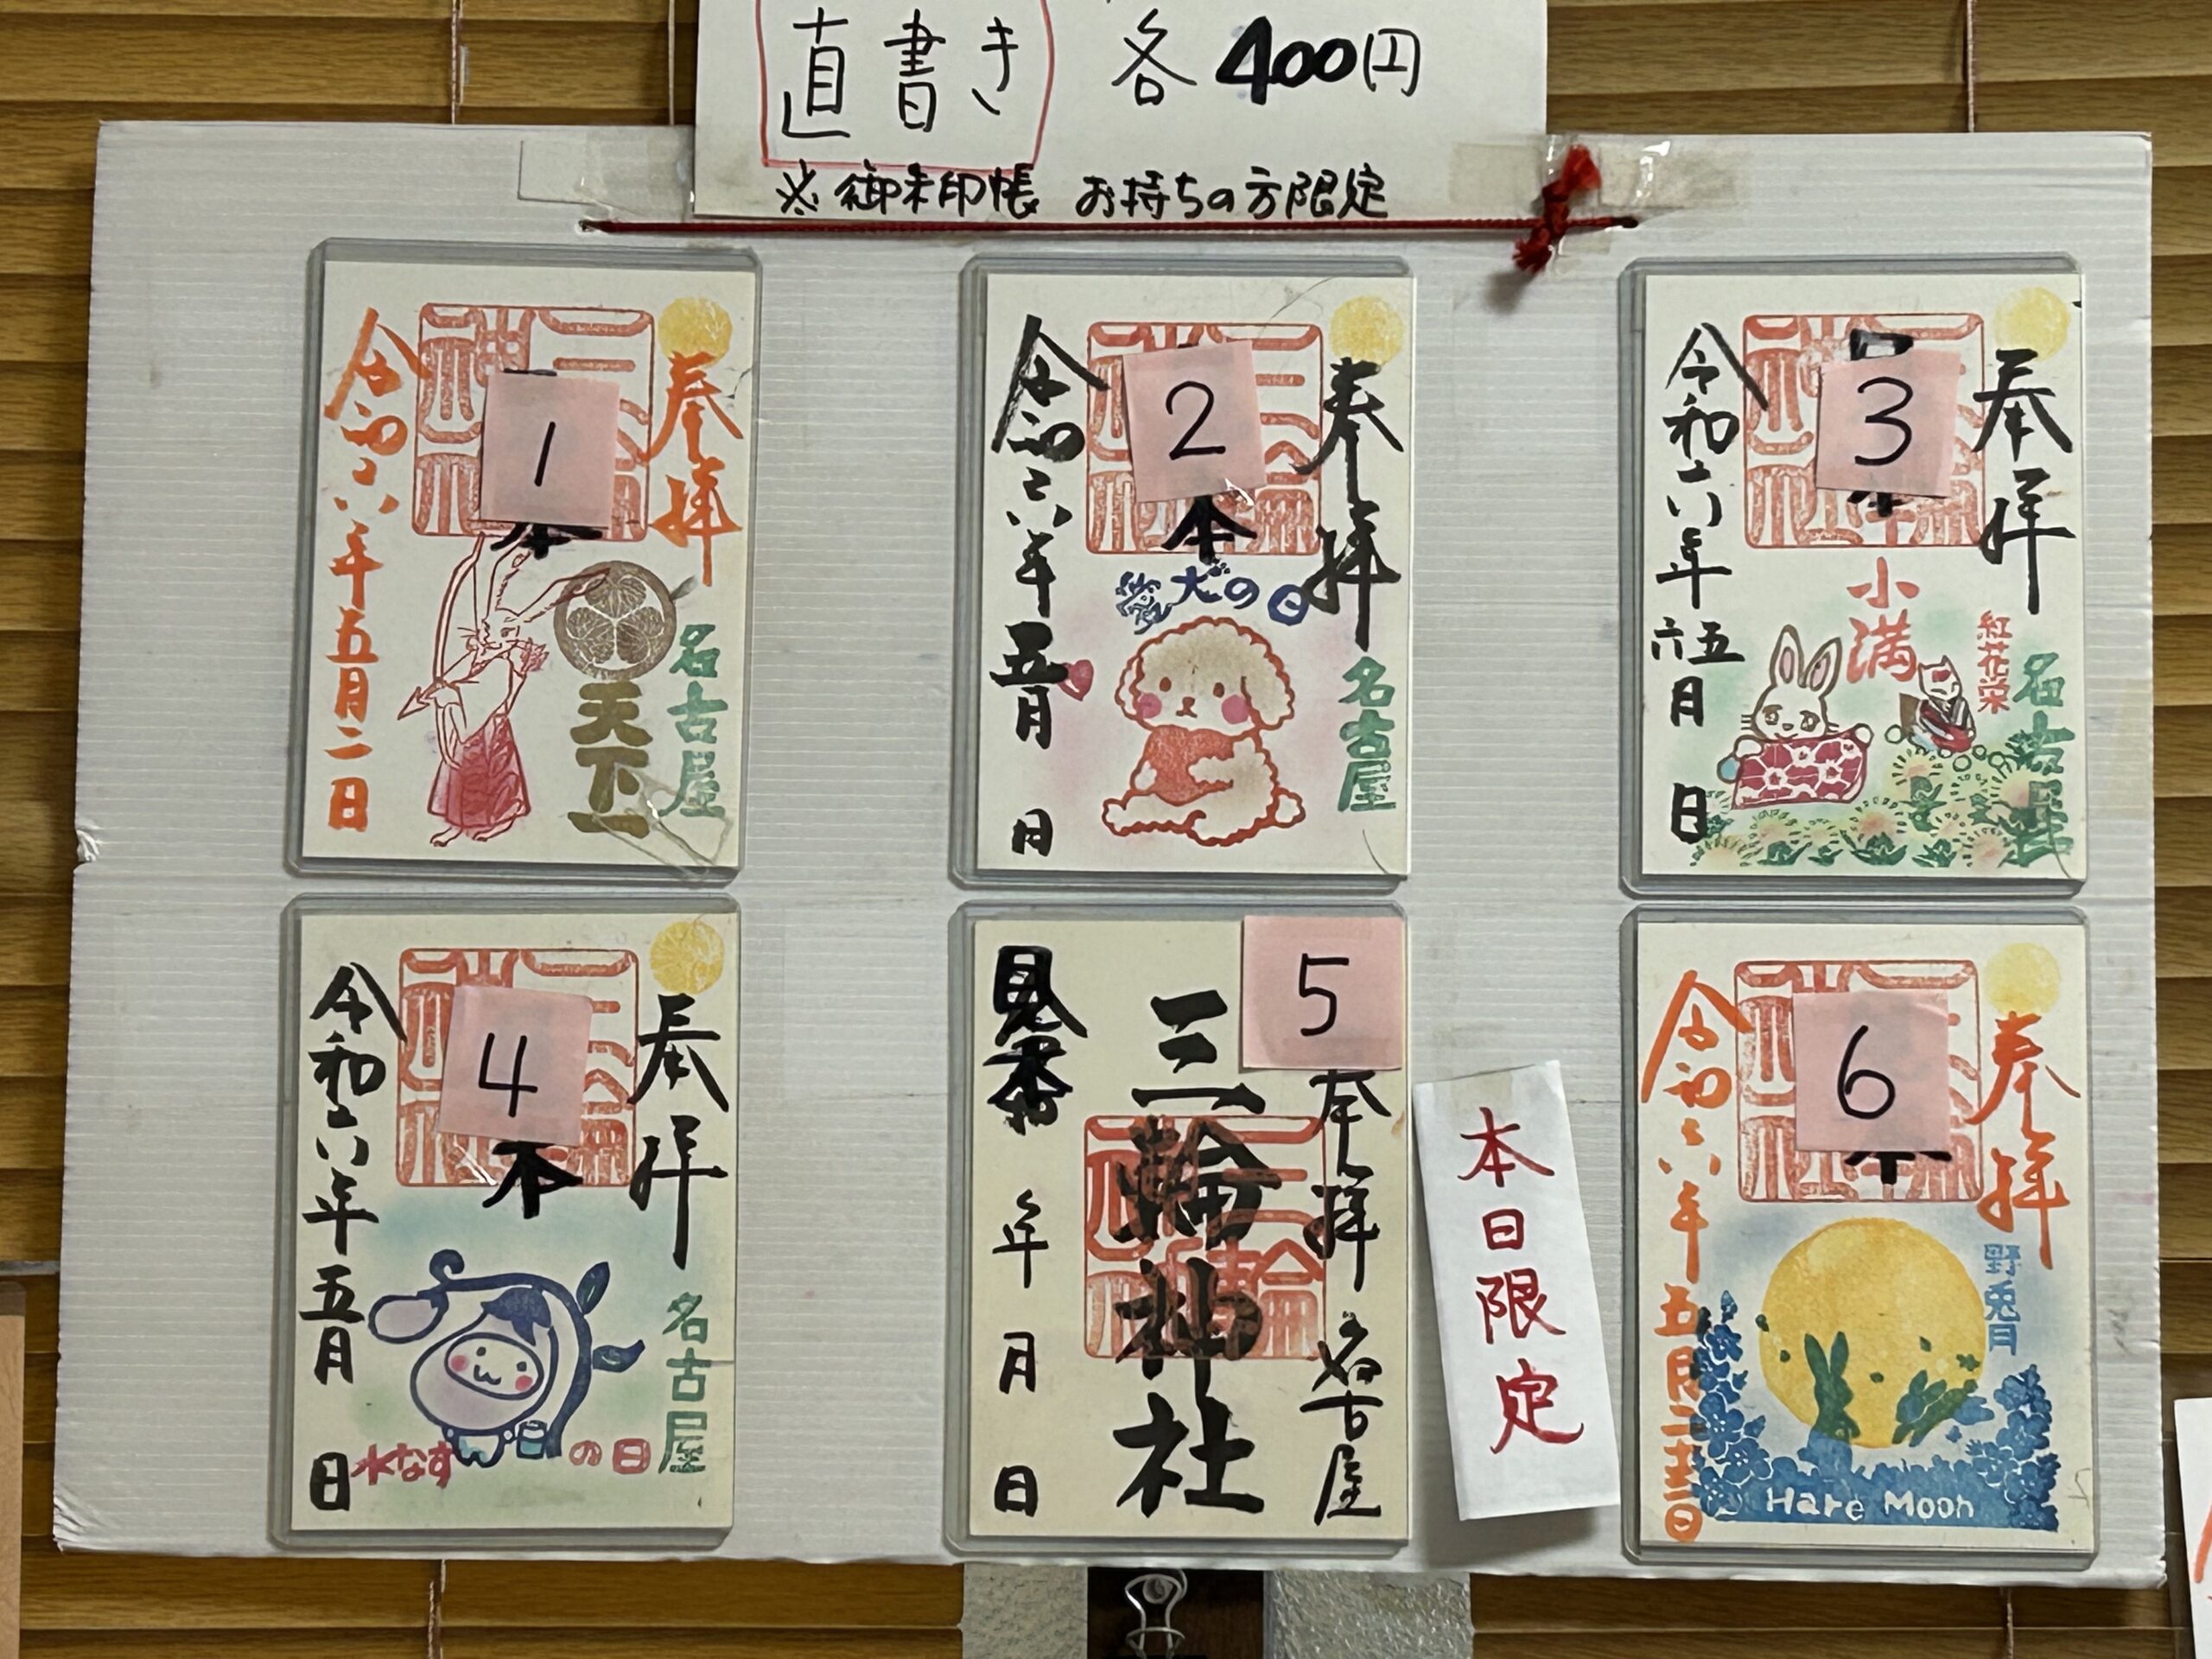 直書き 各400円
※御朱印帳 お持ちの方限定
1
奉拝
令和六年五月二日
名古屋
天下一
2
奉拝
令和六年五月 日
愛犬の日
名古屋
3
奉拝
令和六年六五月 日
小満
紅花栄
名古屋
4
奉拝
令和六年五月 日
名古屋
水なすの日
5
奉拝 名古屋
三輪神社
見本
年 月 日
本日限定
6
奉拝
令和六年五月二十三日
野兎月
Hare Moon